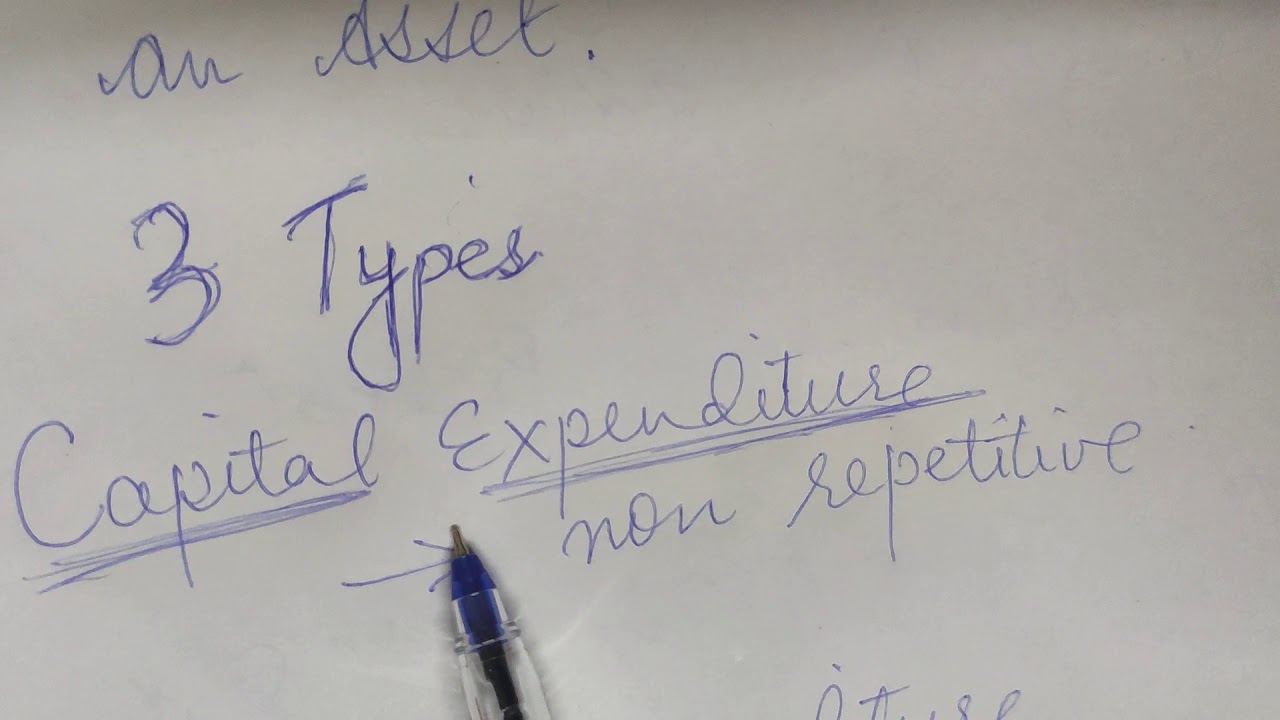 an Asset.
3 Types
Capital Expenditure
→ non repetitive